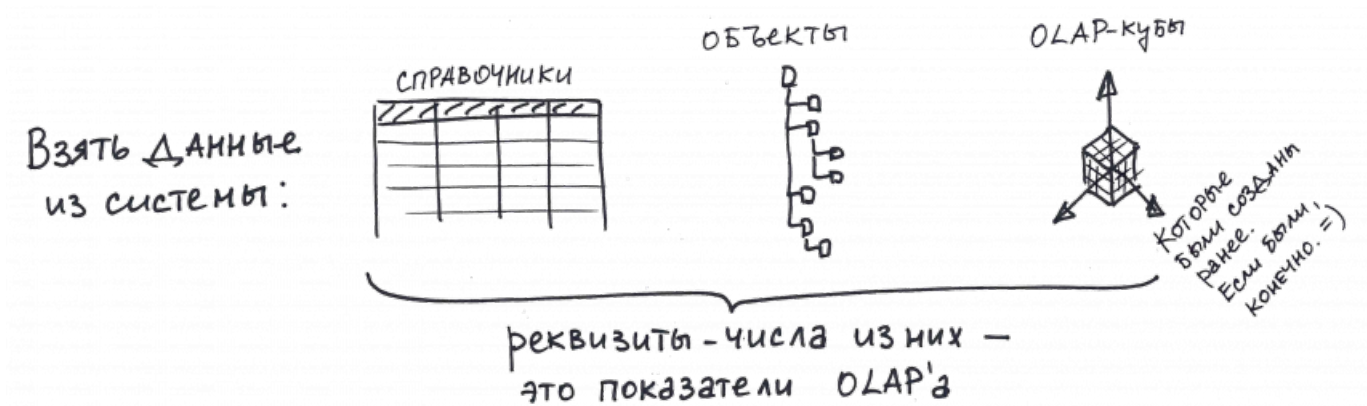 Взять данные
из системы:
СПРАВОЧНИКИ
ОБЪЕКТЫ
OLAP-кубы
Которые
были созданы
ранее.
Если были,
конечно. =)
реквизиты - числа из них —
это показатели OLAP'а